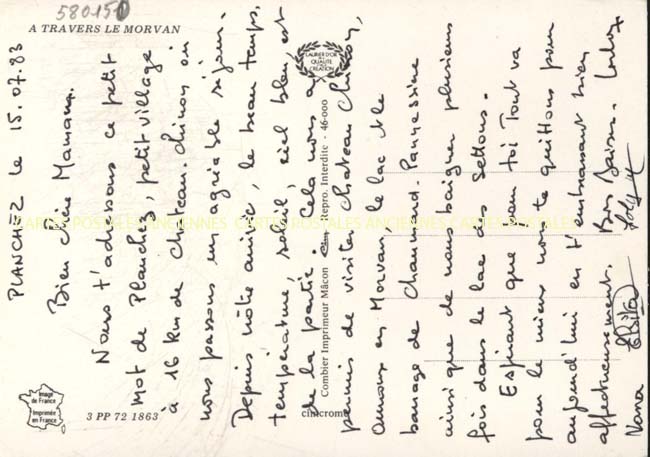 580151
A TRAVERS LE MORVAN
LAURIER D'OR
DE LA
QUALITÉ
CRÉATION
PLANCHEZ le 15.07.83
Bien Chère Maman.
Nous t'adressons ce petit
mot de Planchez, petit village
à 16 km de Château-Chinon où
nous passons un agréable séjour.
Depuis nôtre arrivée, le beau temps,
température, soleil, ciel bleu, est
de la partie. Cela nous a
permis de visiter Chateau Chinon,
Arnous en Morvan, le lac et le
barrage de Chaumard-Pannessière
ainsi que de nous baigner plusieurs
fois dans le lac des Settons.
Espérant que pour toi Tout va
pour le mieux nous te quittons pour
aujourd'hui en t'embrassant bien
affectueusement. Bons Baisers.
Nana
Combier Imprimeur Mâcon Cim Repro. Interdite - 46-000
cimcrome
Image
de France
Imprimée
en France
3 PP 72 1863
CARTES POSTALES ANCIENNES CARTES POSTALES ANCIENNES CARTES POSTALES